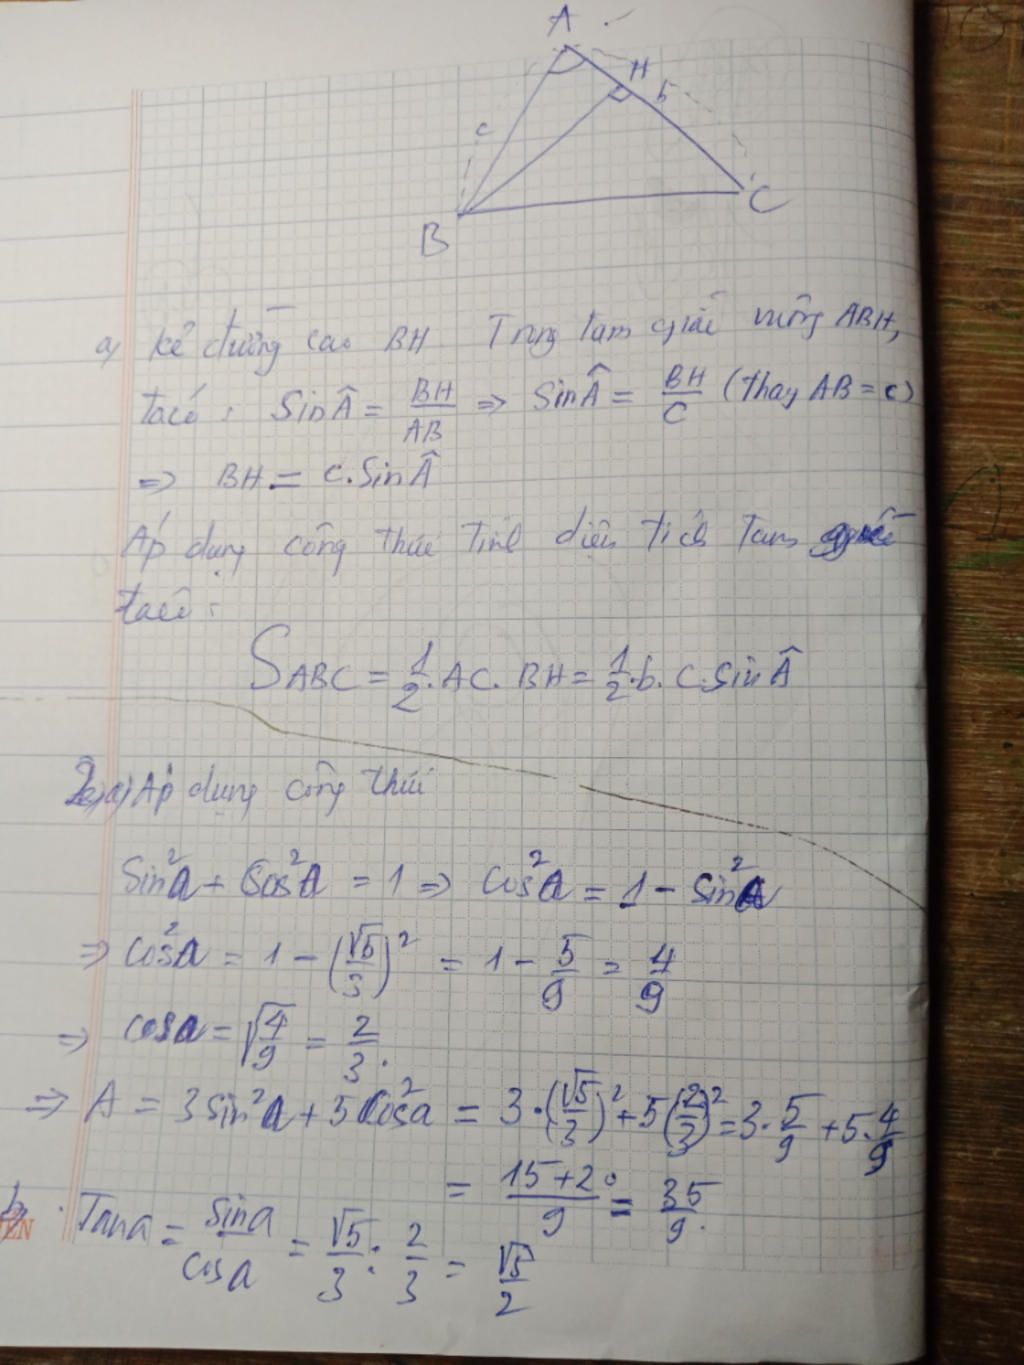 A
H
b
c
B
C
a) kẻ đường cao BH Trong tam giác vuông ABH,
ta có: Sin Â = BH/AB => Sin Â = BH/C (thay AB = c)
=> BH = c. Sin Â
Áp dụng công thức tính diện tích tam giác
ta có:
S ABC = 1/2. AC. BH = 1/2. b. C. Sin Â
a) Áp dụng công thức
Sin²a + Cos²a = 1 => cos²a = 1 - Sin²a
=> cos²a = 1 - (√5/3)² = 1 - 5/9 = 4/9
=> cosa = √4/9 = 2/3.
=> A = 3 Sin²a + 5 Cos²a = 3.(√5/3)² + 5(2/3)² = 3.5/9 + 5.4/9
= 15+20/9 = 35/9.
b, Tana = Sina/cosa = √5/3 : 2/3 = √5/2